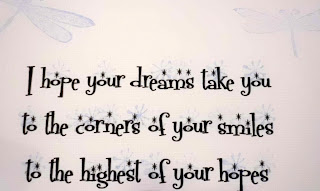 I hope your dreams take you
to the corners of your smiles
to the highest of your hopes